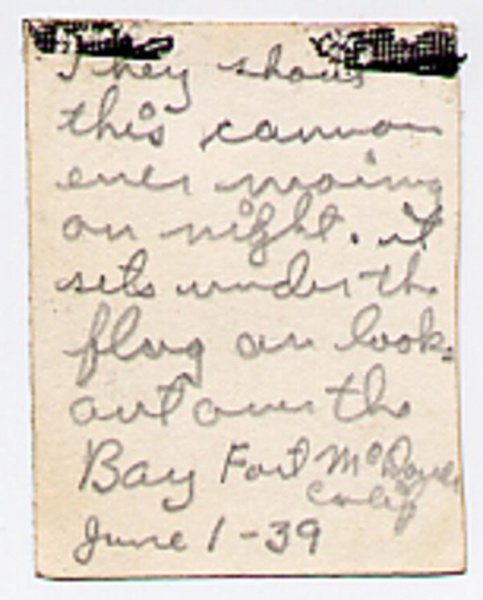 They shout
this cannon
ever moring
an night. it
sets under the
flag an look-
out over the
Bay Fort McDowell
Calif
June 1-39